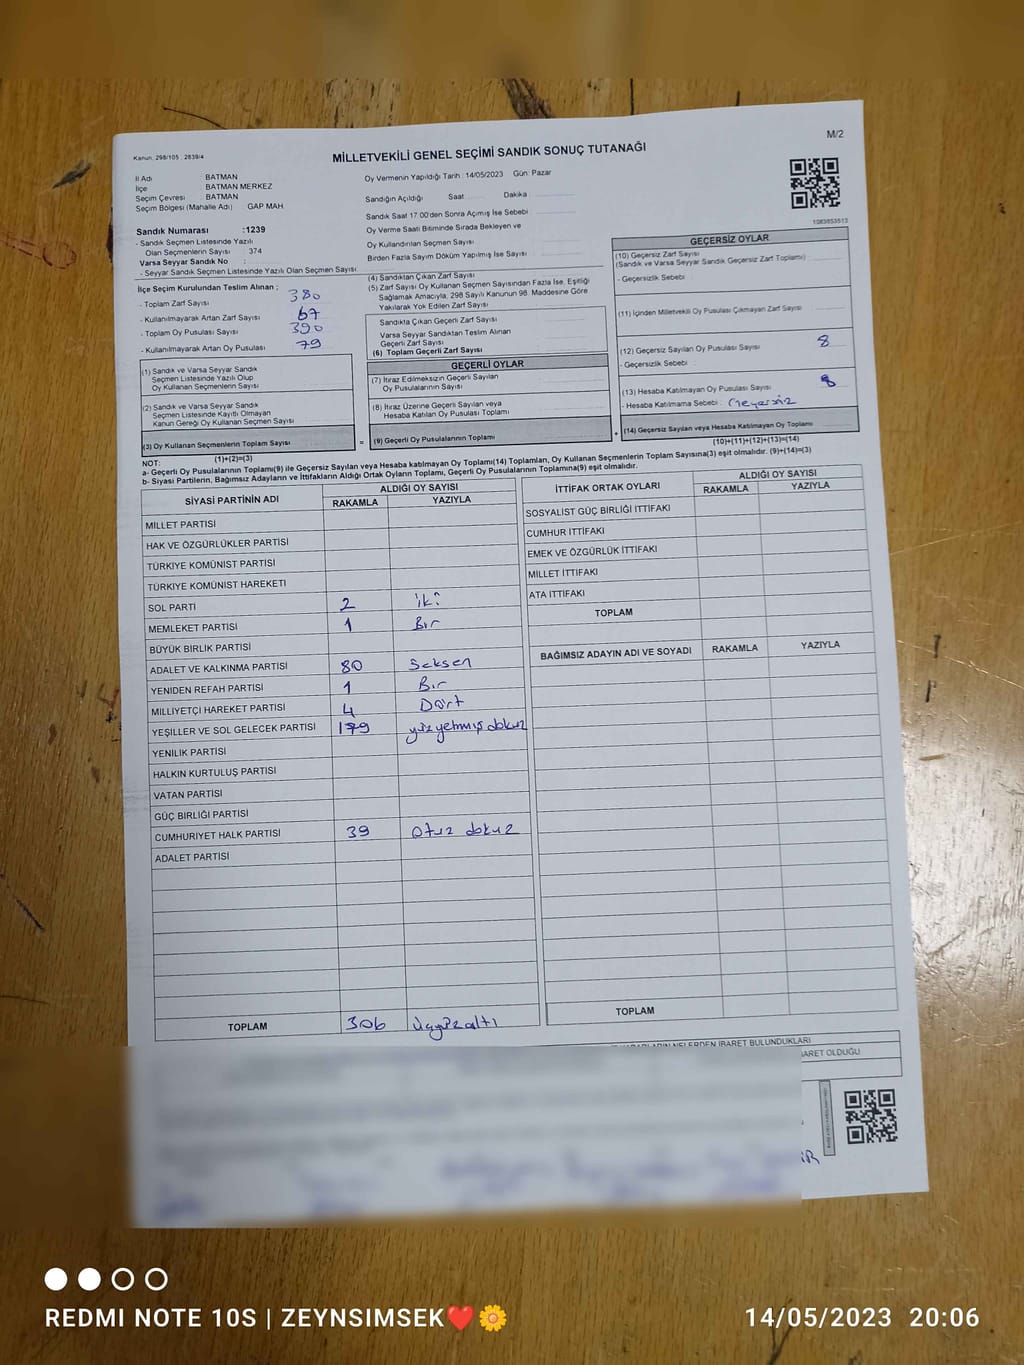 M/2
Kanun: 298/105 : 2839/4
MİLLETVEKİLİ GENEL SEÇİMİ SANDIK SONUÇ TUTANAĞI
İl Adı : BATMAN
İlçe : BATMAN MERKEZ
Seçim Çevresi : BATMAN
Seçim Bölgesi (Mahalle Adı) GAP MAH.
Oy Vermenin Yapıldığı Tarih : 14/05/2023 Gün: Pazar
Sandığın Açıldığı Saat Dakika
Sandık Saat 17:00'den Sonra Açılmış İse Sebebi
Oy Verme Saati Bitiminde Sırada Bekleyen ve
Oy Kullandırılan Seçmen Sayısı
Birden Fazla Sayım Döküm Yapılmış İse Sayısı
1083853513
Sandık Numarası :1239
- Sandık Seçmen Listesinde Yazılı
Olan Seçmenlerin Sayısı : 374
Varsa Seyyar Sandık No :
- Seyyar Sandık Seçmen Listesinde Yazılı Olan Seçmen Sayısı:
İlçe Seçim Kurulundan Teslim Alınan ;
- Toplam Zarf Sayısı : 380
- Kullanılmayarak Artan Zarf Sayısı : 67
- Toplam Oy Pusulası Sayısı : 390
- Kullanılmayarak Artan Oy Pusulası : 79
(4) Sandıktan Çıkan Zarf Sayısı
(5) Zarf Sayısı Oy Kullanan Seçmen Sayısından Fazla İse, Eşitliği
Sağlamak Amacıyla, 298 Sayılı Kanunun 98. Maddesine Göre
Yakılarak Yok Edilen Zarf Sayısı
Sandıkta Çıkan Geçerli Zarf Sayısı
Varsa Seyyar Sandıktan Teslim Alınan
Geçerli Zarf Sayısı
(6) Toplam Geçerli Zarf Sayısı
GEÇERLİ OYLAR
(7) İtiraz Edilmeksizin Geçerli Sayılan
Oy Pusulalarının Sayısı
(8) İtiraz Üzerine Geçerli Sayılan veya
Hesaba Katılan Oy Pusulası Toplamı
(9) Geçerli Oy Pusulalarının Toplamı
GEÇERSİZ OYLAR
(10) Geçersiz Zarf Sayısı
(Sandık ve Varsa Seyyar Sandık Geçersiz Zarf Toplamı)
- Geçersizlik Sebebi :
(11) İçinden Milletvekili Oy Pusulası Çıkmayan Zarf Sayısı
(12) Geçersiz Sayılan Oy Pusulası Sayısı 8
- Geçersizlik Sebebi :
(13) Hesaba Katılmayan Oy Pusulası Sayısı 8
- Hesaba Katılmama Sebebi : Geçersiz
(14) Geçersiz Sayılan veya Hesaba Katılmayan Oy Toplamı
(10)+(11)+(12)+(13)=(14)
(1) Sandık ve Varsa Seyyar Sandık
Seçmen Listesinde Yazılı Olup
Oy Kullanan Seçmen Sayısı
(2) Sandık ve Varsa Seyyar Sandık
Seçmen Listesinde Kayıtlı Olmayan
Kanun Gereği Oy Kullanan Seçmen Sayısı
(3) Oy Kullanan Seçmenlerin Toplam Sayısı
=
+
(1)+(2)=(3)
NOT:
a- Geçerli Oy Pusulalarının Toplamı(9) ile Geçersiz Sayılan veya Hesaba katılmayan Oy Toplamı(14) Toplamları, Oy Kullanan Seçmenlerin Toplam Sayısına(3) eşit olmalıdır. (9)+(14)=(3)
b- Siyasi Partilerin, Bağımsız Adayların ve İttifakların Aldığı Ortak Oyların Toplamı, Geçerli Oy Pusulalarının Toplamına(9) eşit olmalıdır.
SİYASİ PARTİNİN ADI ALDIĞI OY SAYISI
RAKAMLA YAZIYLA
MİLLET PARTİSİ
HAK VE ÖZGÜRLÜKLER PARTİSİ
TÜRKİYE KOMÜNİST PARTİSİ
TÜRKİYE KOMÜNİST HAREKETİ
SOL PARTİ 2 iki
MEMLEKET PARTİSİ 1 Bir
BÜYÜK BİRLİK PARTİSİ
ADALET VE KALKINMA PARTİSİ 80 Seksen
YENİDEN REFAH PARTİSİ 1 Bir
MİLLİYETÇİ HAREKET PARTİSİ 4 Dört
YEŞİLLER VE SOL GELECEK PARTİSİ 179 yüz yetmiş dokuz
YENİLİK PARTİSİ
HALKIN KURTULUŞ PARTİSİ
VATAN PARTİSİ
GÜÇ BİRLİĞİ PARTİSİ
CUMHURİYET HALK PARTİSİ 39 otuz dokuz
ADALET PARTİSİ
TOPLAM 306 üçyüzaltı
İTTİFAK ORTAK OYLARI ALDIĞI OY SAYISI
RAKAMLA YAZIYLA
SOSYALİST GÜÇ BİRLİĞİ İTTİFAKI
CUMHUR İTTİFAKI
EMEK VE ÖZGÜRLÜK İTTİFAKI
MİLLET İTTİFAKI
ATA İTTİFAKI
TOPLAM
BAĞIMSIZ ADAYIN ADI VE SOYADI RAKAMLA YAZIYLA
TOPLAM
NELERDEN İBARET BULUNDUKLARI
İBARET OLDUĞU
REDMI NOTE 10S | ZEYNSIMSEK❤️🌼
14/05/2023 20:06